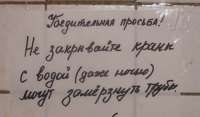 Убедительная просьба!
Не закрывайте краны
с водой (даже ночью)
могут замёрзнуть трубы